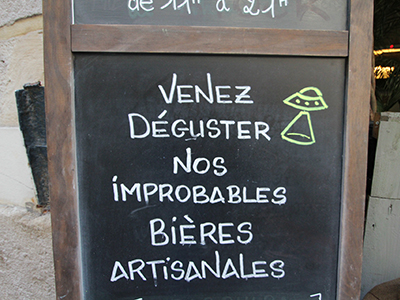 de 11h à 21h
VENEZ
DÉGUSTER
NOS
IMPROBABLES
BIÈRES
ARTISANALES